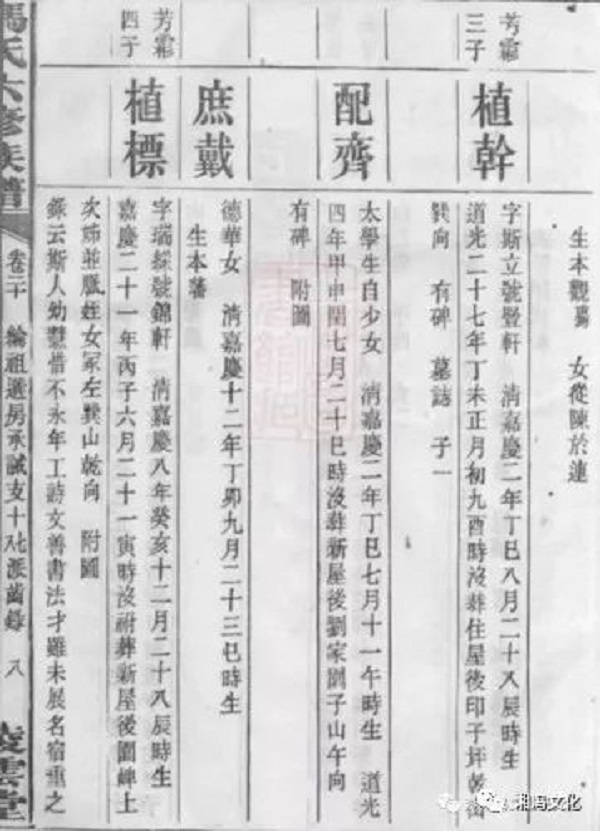 生本觀蕩 女從陳於連
芳霨三子
植幹
字斯立號豎軒 清嘉慶二年丁巳八月二十八辰時生
道光二十七年丁未正月初九酉時沒葬住屋後印子坪乾山
巽向 有碑 墓誌 子一
配齊
太學生自少女 清嘉慶二年丁巳七月十一午時生 道光
四年甲申閏七月二十巳時沒葬新屋後劉家園子山午向
有碑 附圖
庶戴
德華女 清嘉慶十二年丁卯九月二十三巳時生
生本蕃
芳霨四子
植標
字瑞綵號錦軒 清嘉慶八年癸亥十二月二十八辰時生
嘉慶二十一年丙子六月二十一寅時沒祔葬新屋後園崥上
次姊並胞姪女冢左巽山乾向 附圖
錄云斯人幼慧惜不永年工詩文善書法才雖未展名宿重之
馮氏六修族譜
卷二十 綸祖選房承誠支十七派齒錄 八
凌雲堂
湘冯文化